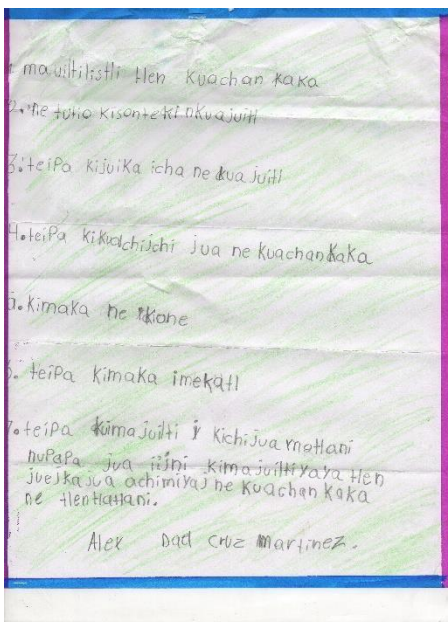 1 mauiltilistli tlen kuachan kaka
2. ne tutio kisonteki nkuajuitl
3. teipa kijuika icha ne kuajuitl
4. teipa kikualchijchi jua ne kuachankaka
5. kimaka ne ikone
6. teipa kimaka imekatl
7. teipa kimajuilti y kichijua motlani
nupapa jua iijni kimajuiltiyaya tlen
juejkajua achimiyaj ne kuachan kaka
ne tlentlatlani.
Alex Dad Cruz Martinez.